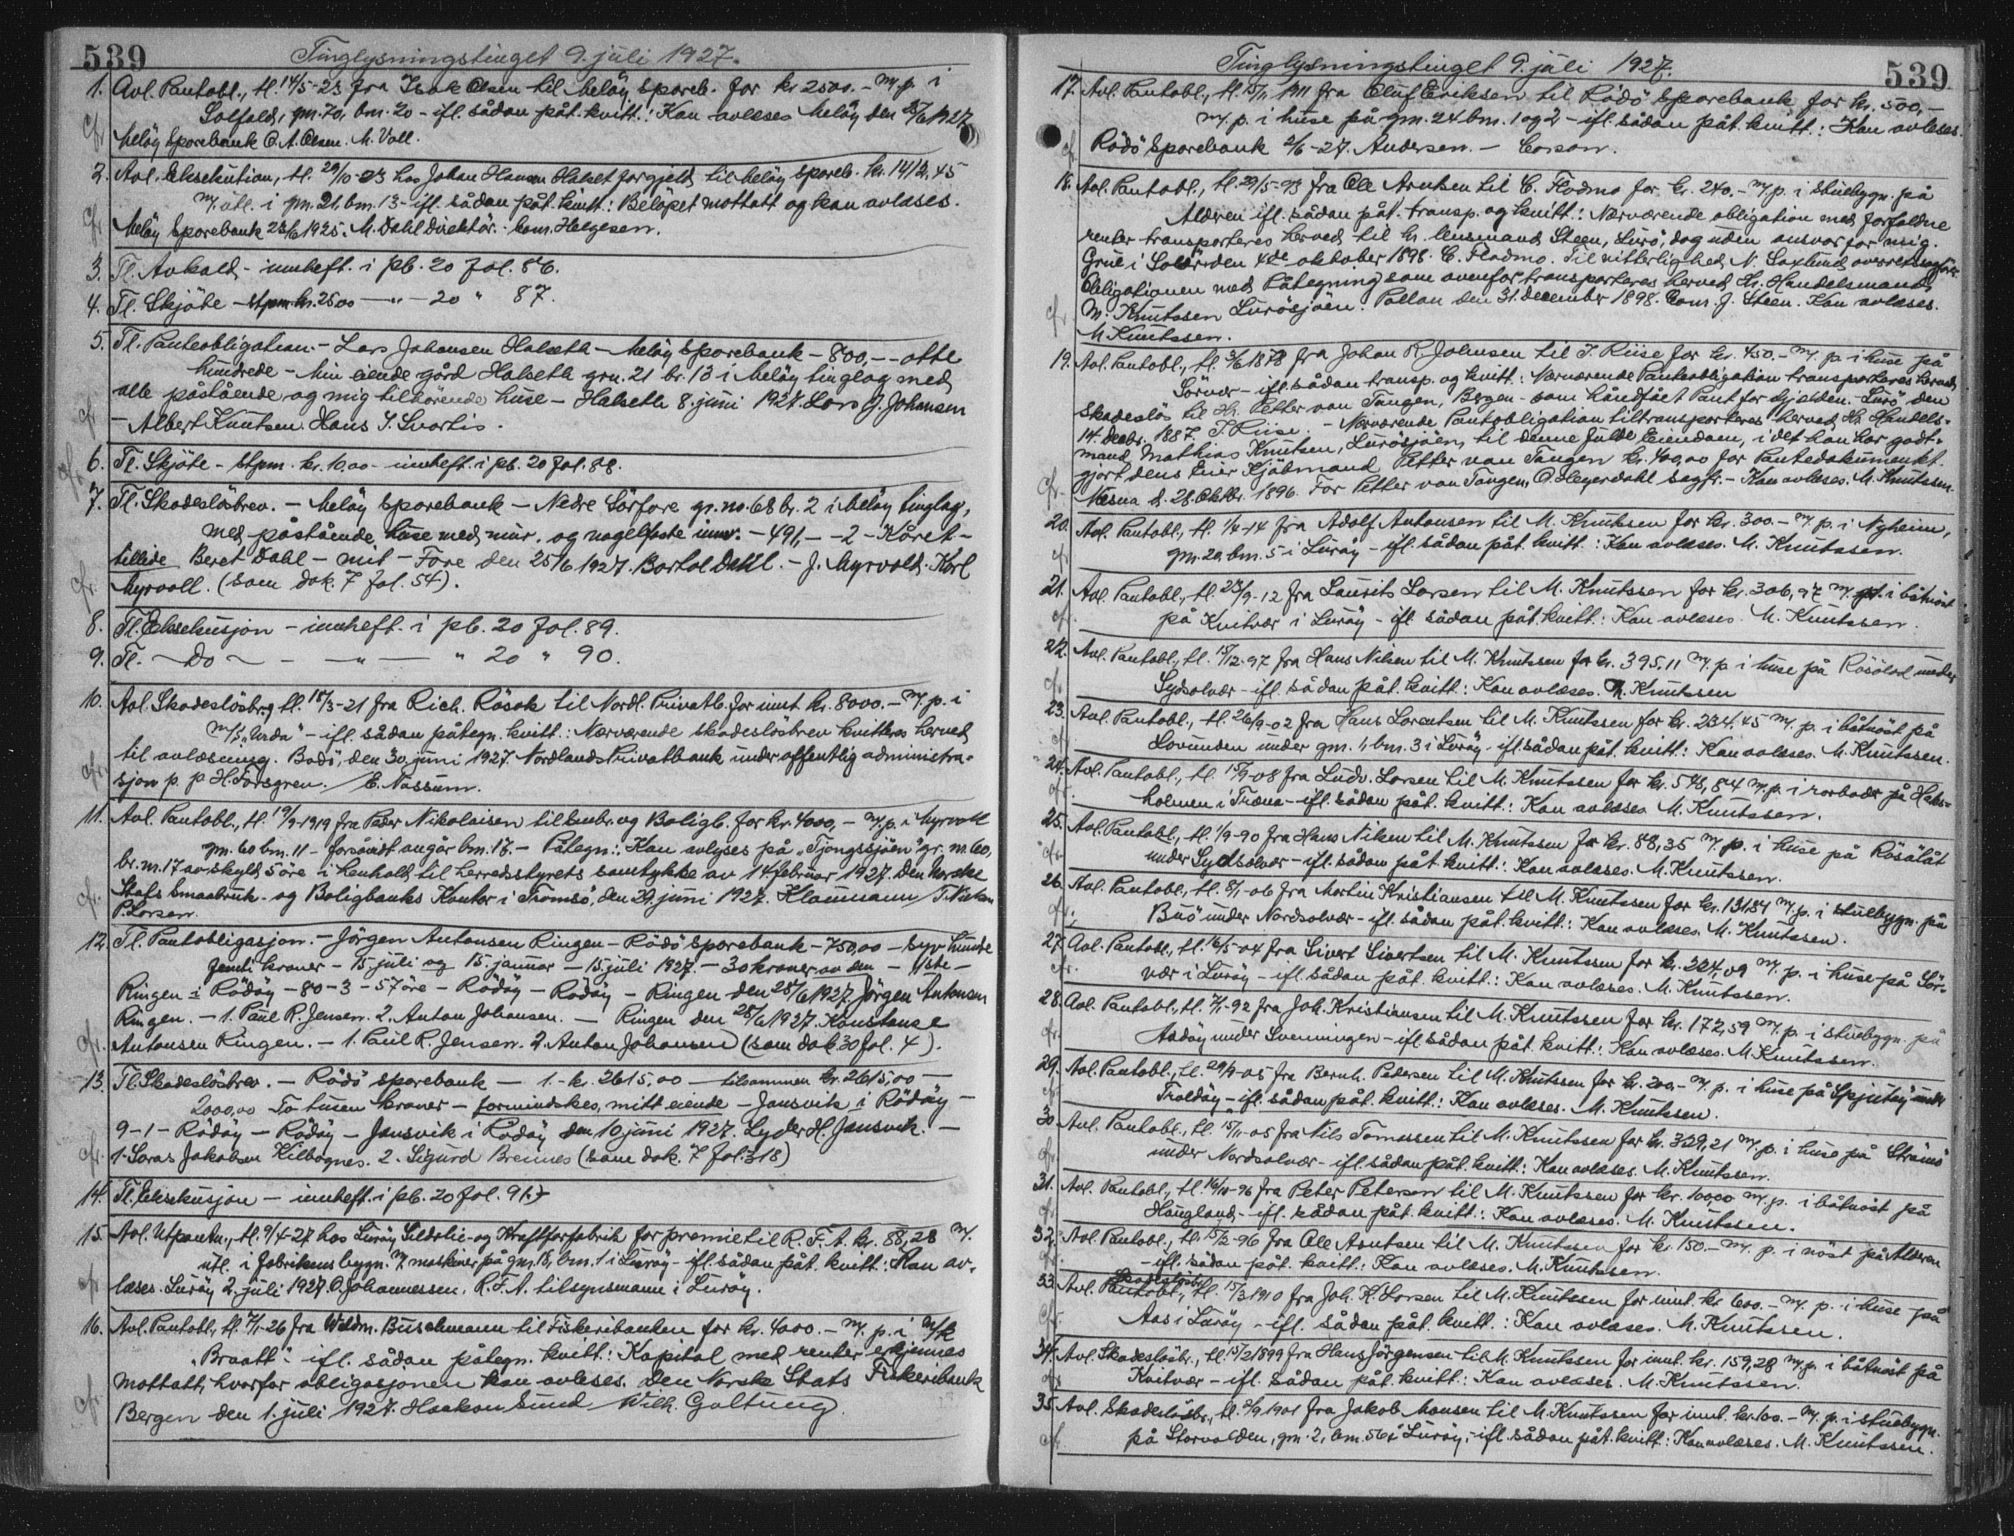 539
Tinglysningstinget 9. juli 1927.
1. Avl. Pantobl., tl. 14/5-23 fra Isak Olsen til Meløy Spareb. for kr 2500.- m. p. i
Solfald, gnr. 70, bnr. 20 - ifl. sådan påt. kvitt.: Kan avlæses Meløy den 25/6 1927
Meløy Sparebank O. A. Olsen. M. Voll.
2. Avl. Eksekution, tl. 20/10-23 hos Johan Hansen Halset for gjeld til Meløy Spareb. kr. 1412,45
m/utl. i gnr. 21, bnr. 13 - ifl. sådan påt. kvitt.: Beløpet mottatt og kan avlæses.
Meløy Sparebank 23/6 1925. M. Dahl direktør. Corn. Helgesen.
3. Tl. Avkald - innheft. i pb. 20 fol. 86.
4. Tl. Skjøte - stpm kr. 2500 - " - 20 " 87.
5. Tl. Panteobligation. - Lars Johansen Halseth - Meløy Sparebank - 800,- - otte
hundrede - Min eiende gård Halseth grn. 21 br. 13 i Meløy tinglag med
alle påstående og mig tilhørende huse - Halseth 8. juni 1927. Lars J. Johansen
- Albert Knutsen. Hans J. Svartis.
6. Tl. Skjøte - stpm. kr. 10.00 - innheft. i pb. 20 fol. 88.
7. Tl. Skadesløsbrev. - Meløy Sparebank - Nedre Sørfore gr. no. 68 br. 2 i Meløy tinglag,
med påstående huse med mur. og nagelfaste innr. - 491,- - 2 - Kåret -
tillide Beret Dahl - mit - Fore den 25/6 1927. Bartol Dahl. - J. Myrvold. Karl
Myrvoll. (som dok. 7 fol. 54).
8. Tl. Eksekusjon - innheft. i pb. 20 fol. 89.
9. Tl. - Do - - " - " 20 " 90.
10. Avl. Skadesløsbrev tl. 18/3-21 fra Rich. Røsok til Nordl. Privatb. for innt kr. 8000.- m. p. i
m/s "Urda" - ifl. sådan påtegn. kvitt.: Nærværende skadesløsbrev kvitteres herved
til avlæsning. Bodø, den 30. juni 1927. Nordlands Privatbank under offentlig administra-
sjon p. p H. Forsgren. / E. Nassum.
11. Avl. Pantobl., tl. 19/9-1919 fra Peder Nikolaisen til Småbr. og Boligb. for kr. 4000,- m. p. i Myrvoll
gnr. 60 bnr. 11 - forsåvidt angår bnr. 17. - Påtegn.: Kan avlyses på "Tjongsjøen" gr. nr. 60,
br. nr. 17 av skyld 5 øre i henhold til herredsstyrets samtykke av 14. februar 1927. Den Norske
Stats Smaabruk- og Boligbanks Kontor i Tromsø, den 29. juni 1927. Klaumann
P. Larsen.
12. Tl. Pantobligasjon. - Jørgen Antonsen Ringen - Rødø Sparebank - 750,00 - syv hundre
femti kroner - 15 juli og 15. januar - 15. juli 1927. - 30 kroner av den - 1ste -
Ringen i Rødøy - 80 - 3 - 57 øre - Rødøy - Rødøy - Ringen den 28/6 1927. Jørgen Antonsen
Ringen. - 1. Paul R. Jensen. 2. Anton Johansen. - Ringen den 28/6 1927. Konstanse
Antonsen Ringen. - 1. Paul R. Jensen. 2. Anton Johansen (som dok 30 fol. 4).
13. Tl. Skadesløsbrev. - Rødø sparebank - 1. - kr. 2615,00 - tilsammen kr. 2615,00 -
2000,00 To tusen kroner - formindskes, mitt eiende - Jensvik i Rødøy -
9 - 1 - Rødøy - Rødøy - Jensvik i Rødøy den 10 juni 1927. Lyder H. Jensvik. -
1. Loras Jakobsen Kilbognes. 2. Sigurd Brennes (som dok. 7 fol. 318)
14. Tl. Eksekusjon - innheft. i pb. 20 fol. 91.
15. Avl. Utpantn., tl. 9/4-27 hos Lurøy Sildolie- og Kraftforfabrik for premie til R. F. A. kr. 88,28 m.
utl. i fabrikens bygn. m/ maskiner på gnr. 18, bnr. 1 i Lurøy - ifl. sådan påt. kvitt.: Kan av-
læses. Lurøy 2. juli 1927. O. Johannessen. R. F. A. tilsynsmann i Lurøy.
16. Avl. Pantobl., tl. 7/1-26 fra Waldm. Buschmann til Fiskeribanken for kr. 4000.- m. p. i m/k
"Braatt" - ifl. sådan påtegn. kvitt.: Kapital med renter erkjennes
mottatt, hvorfor obligasjonen kan avleses. Den Norske Stats Fiskeribank
Bergen den 1. juli 1927. Haakon Sund Wilh. Galtung.
539
Tinglysningstinget 9. juli 1927.
17. Avl. Pantobl., tl. 15/11 1911 fra Oluf Eriksen til Rødø Sparebank for kr. 500,-
m. p. i huse på gnr. 24 bnr. 1 og 2 - ifl. sådan påt. kvitt.: Kan avlæses.
Rødø Sparebank 2/6-27. Andersen. - Corson.
18. Avl. Pantobl., tl. 29/5-93 fra Ole Arntsen til C. Flodmo for kr. 240.- m. p. i stuebygn. på
Alderen ifl. sådan påt. transp. og kvitt.: Nærværende obligation med forfaldne
renter transporteres herved til hr. lensmand Steen, Lurø, dog uden ansvar for mig.
Grue i Solør den 4de oktober 1898. C. Flodmo. Til vitterlighed N. Saxlund overretssagfører
Obligationen med Påtegning som ovenfor transporteres herved Hr. Handelsmand
M. Knutssen Lurøsjøen. Pollan den 31. december 1898. Com. J. Steen. Kan avlæses.
M. Knutssen.
19. Avl. Pantobl., tl. 3/6 1878 fra Johan R. Johnsen til J. Riise for kr. 450.- m. p. i huse på
Sørvær - ifl. sådan transp. og kvitt.: Nærværende Panteobligation transporteres herved
skadesløs til Hr. Petter von Tangen, Bergen - som håndfået Pant for Gjelden. Lurø den
14. Decbr. 1887. J. Riise. - Nærværende Pantobligation tiltransporteres herved Hr. Handels-
mand Mathias Knutsen, Lurøsjøen, til denne fulde Eiendom, i det han har godt-
gjort dens Eier Kjøbmand Petter von Tangen kr. 400,00 for Pantedokumentet.
Mesna d. 28. Oktbr. 1896. For Petter von Tangen, O. Heyerdahl sagfr. - Kan avlæses. M. Knutssen.
20. Avl. Pantobl., tl. 1/4-14 fra Adolf Antonsen til M. Knutssen for kr. 300.- m. p. i Nyheim,
gnr. 20, bnr. 5 i Lurøy - ifl. sådan påt. kvitt.: Kan avlæses. M. Knutssen.
21. Avl. Pantobl., tl. 23/9-12 fra Laurits Larsen til M. Knutssen for kr. 306,97 m. p. i båtnøst
på Kvitvær i Lurøy - ifl. sådan påt. kvitt.: Kan avlæses M. Knutssen.
22. Avl. Pantobl., tl. 15/12-97 fra Hans Nilsen til M. Knutssen for kr. 395.11 m. p i huse på Røsøløt under
Sydsolvær - ifl. sådan påt. kvitt.: Kan avlæses. M Knutssen
23. Avl. Pantobl., tl. 26/9-02 fra Hans Lorentsen til M. Knutssen for kr. 234,45 m. p. i båtnøst på
Lovunden under gnr. 1, bnr. 3 i Lurøy - ifl. sådan påt. kvitt.: Kan avlæses. M. Knutssen.
24. Avl. Pantobl., tl. 15/9-08 fra Ludv. Larsen til M. Knutssen for kr. 548,84 m. p. i rorboder på Hals-
holmen i Træna - ifl. sådan påt. kvitt.: Kan avlæses. M. Knutssen.
25. Avl. Pantobl., tl. 1/9-90 fra Hans Nilsen til M. Knutssen for kr. 88,35 m. p. i huse på Røsøløt
under Sydsolvær - ifl. sådan påt. kvitt.: Kan avlæses. M. Knutssen.
26. Avl. Pantobl., tl. 8/1-06 fra Martin Kristiansen til M. Knutssen for kr. 131,84 m. p. i stuebygn. på
Buø under Nordsolvær - ifl. sådan påt. kvitt.: Kan avlæses. M. Knutssen.
27. Avl. Pantobl., tl. 16/5-04 fra Sivert Sivertsen til M. Knutssen for kr. 224,09 m. p. i huse på Sør-
vær i Lurøy - ifl. sådan påt. kvitt.: Kan avlæses. M. Knutssen.
28. Avl. Pantobl., tl. 7/1-92 fra Joh. Kristiansen til M. Knutssen for kr. 172,59 m. p. i stuebygn. på
Aadøy under Svenningen - ifl. sådan påt. kvitt.: Kan avlæses. M. Knutssen.
29. Avl. Pantobl., tl. 29/9-05 fra Bernh. Pedersen til M. Knutssen for kr. 200,- m. p. i huse på Spjutøy under
Traldøy - ifl. sådan påt. kvitt.: Kan avlæses. M. Knutssen.
30. Avl. Pantobl., tl. 15/11-05 fra Nils Tomassen til M. Knutssen for kr. 329,21 m. p. i huse på Straumø
under Nordsolvær - ifl. sådan påt. kvitt.: Kan avlæses. M. Knutssen.
31. Avl. Pantobl., tl. 16/10-96 fra Peter Petersen til M. Knutssen for kr. 100,00 m. p. i båtnøst på
Haugland - ifl. sådan påt. kvitt.: Kan avlæses. M. Knutssen.
32. Avl Pantobl., tl. 15/12-96 fra Ole Arntsen til M. Knutssen for kr. 150.- m. p. i nøst på Alderen
- ifl. sådan påt. kvitt.: Kan avlæses. M. Knutssen.
33. Avl. Skadesløsbr. Pantobl., tl. 15/3 1910 fra Joh. K. Larsen til M. Knutssen for innt. kr 600.- m. p. i huse på
Aas i Lurøy - ifl. sådan påt. kvitt.: Kan avlæses. M. Knutssen.
34. Avl. Skadesløsbr., tl. 15/2 1899 fra Hans Jørgensen til M. Knutssen for innt. kr. 159,28 m. p. i båtnøst på
Kvitvær - ifl. sådan påt. kvitt.: Kan avlæses. M. Knutssen.
35. Avl. Skadesløsbr., tl. 2/9 1901 fra Jakob Monsen til M. Knutssen for innt. kr. 100.- m. p. i stuebygn.
på Storvolden, gnr. 2, bnr. 56 i Lurøy, - ifl. sådan påt. kvitt.: Kan avlæses. M. Knutssen.